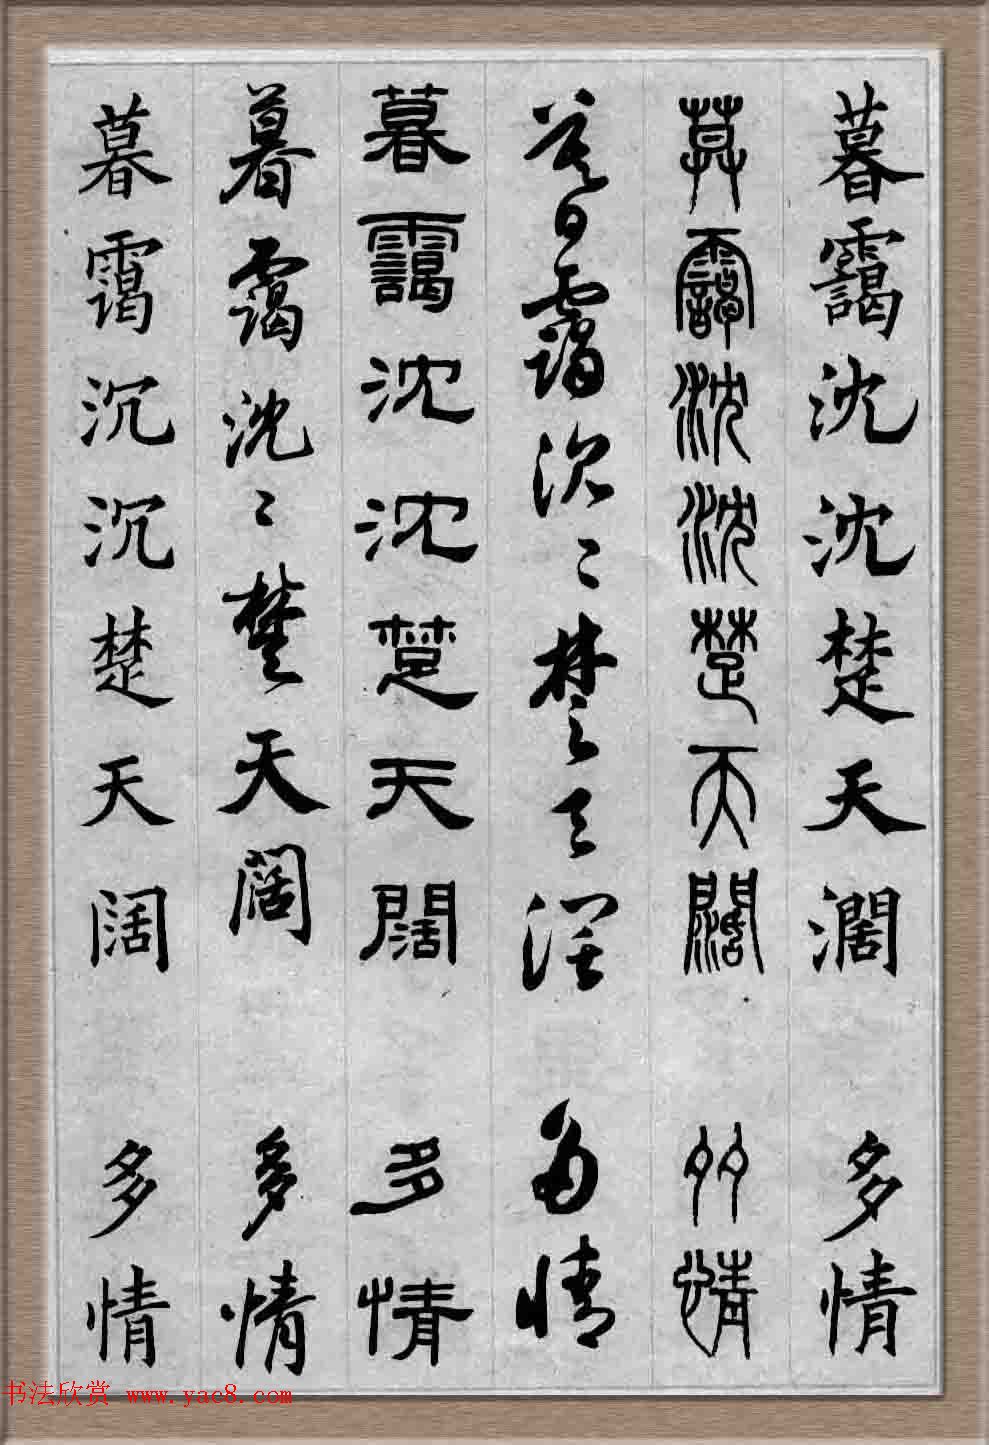 暮靄沈沈楚天濶 多情
莫靄沈沈楚天闊 多情
暮靄沉〻楚天濶 多情
暮靄沈沈楚天闊 多情
暮靄沈〻楚天闊 多情
暮霭沉沉楚天阔 多情
书法欣赏 www.yac8.com